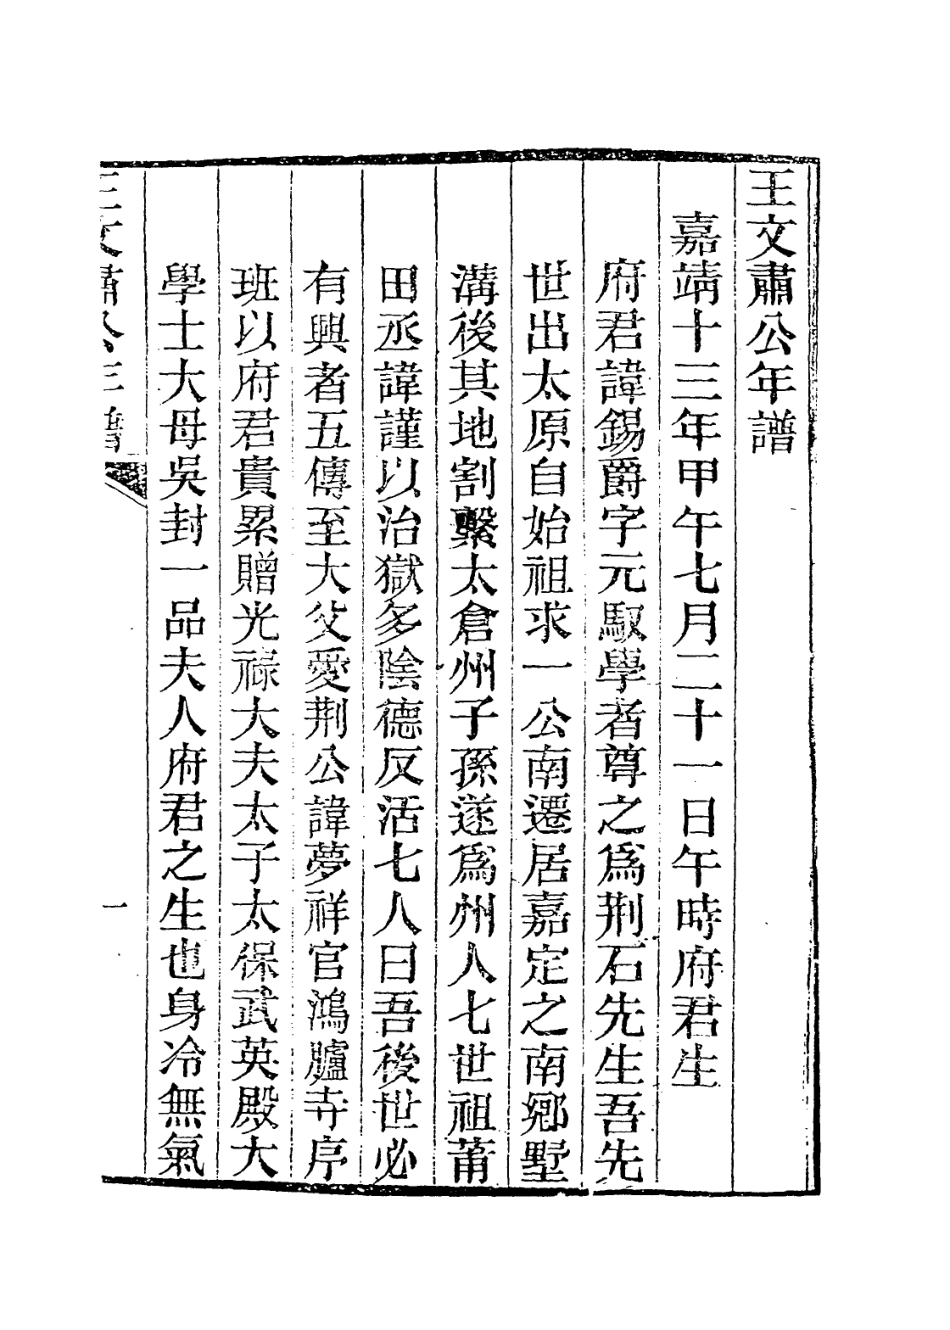 王文肅公年譜
嘉靖十三年甲午七月二十一日午時府君生
府君諱錫爵字元馭學者尊之爲荆石先生吾先
世出太原自始祖求一公南遷居嘉定之南鄉墅
溝後其地割繫太倉州子孫遂爲州人七世祖莆
田丞諱謹以治獄多陰德反活七人曰吾後世必
有興者五傳至大父愛荆公諱夢祥官鴻臚寺序
班以府君貴累贈光祿大夫太子太保武英殿大
學士大母吳封一品夫人府君之生也身冷無氣
王文肅公年譜
一